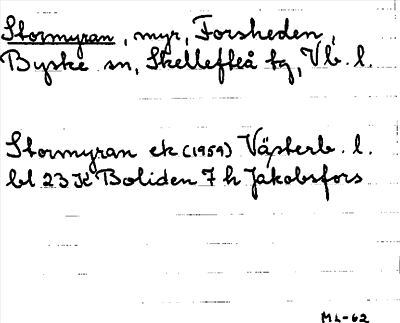 Stormyran, myr, Forsheden,
Byske sn, Skellefteå tg, Vb. l.
Stormyran ek (1959) Västerb. l.
bl 23 K Boliden 7 h Jakobsfors
ML-62